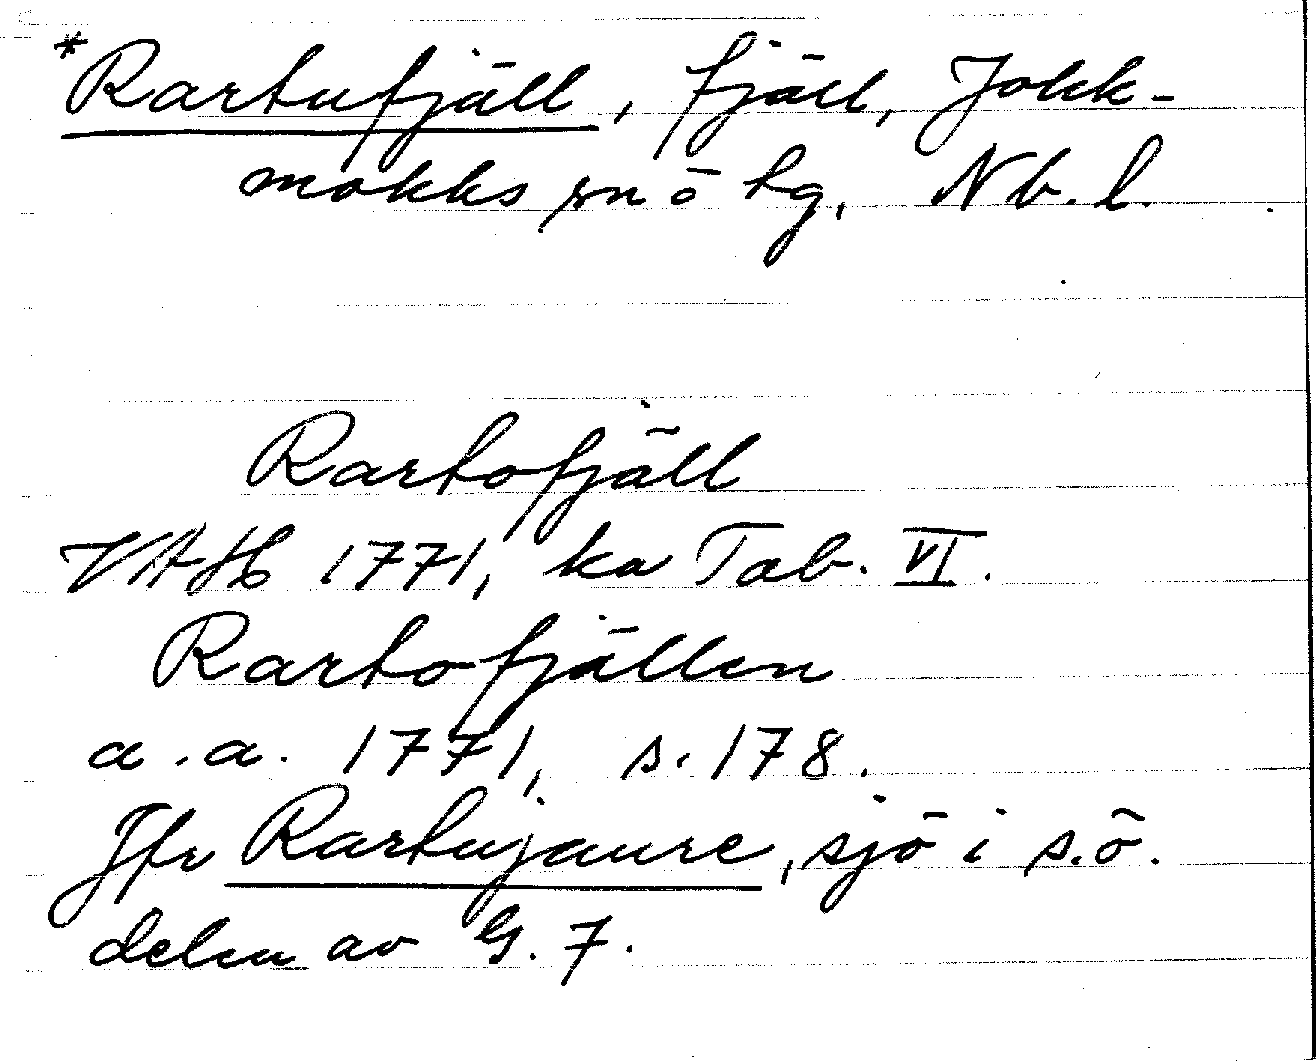 *Rartufjäll, fjäll, Jokk-
mokks sn o lg, Nb. l.
Rartofjäll
VAH 1771, ka Tab. VI.
Rartofjällen
a.a. 1771, s. 178.
Jfr Rartujaure, sjö i s.ö.
delen av G. 7.